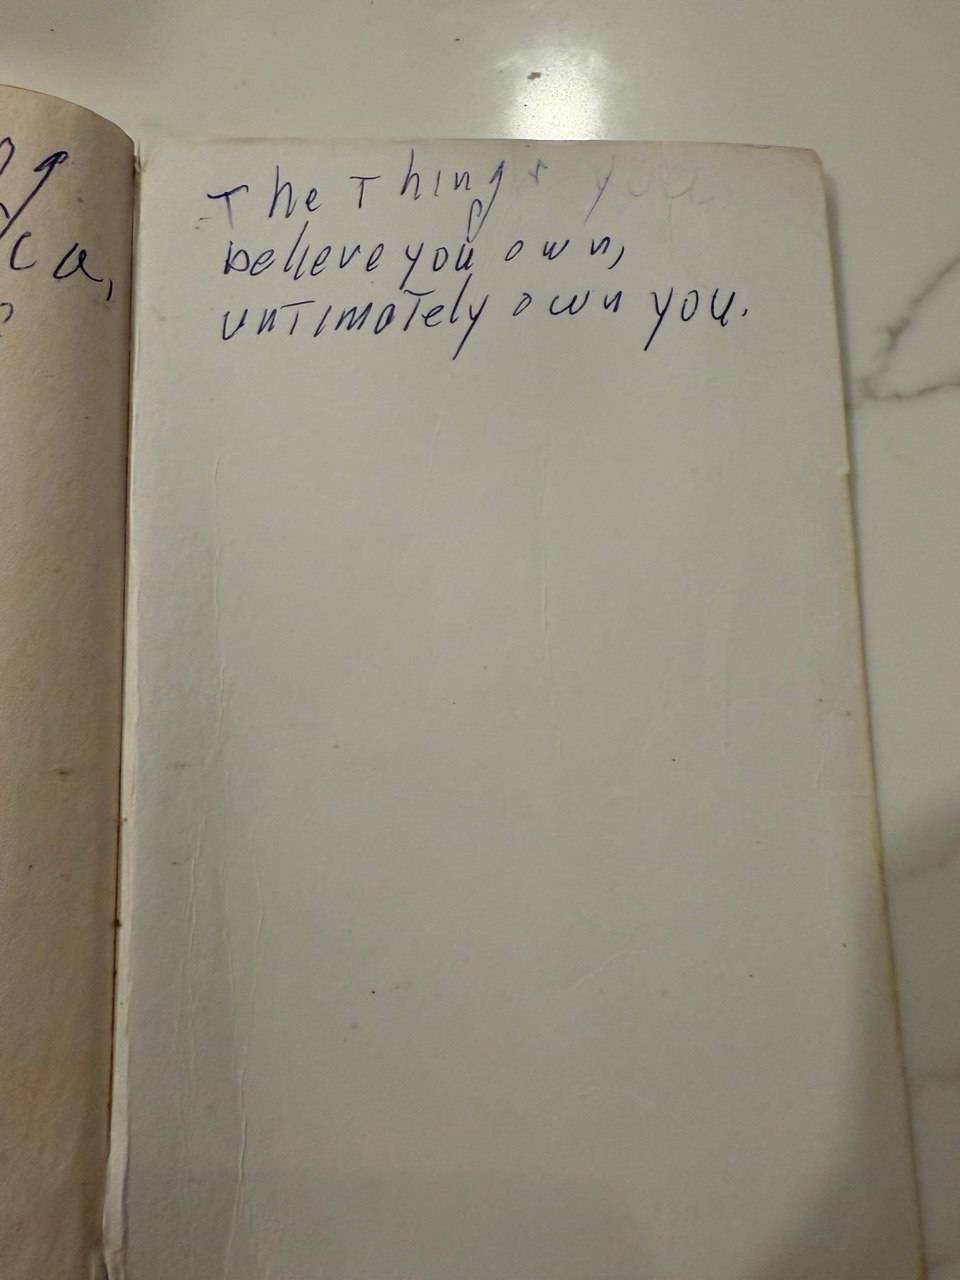 The Things you
believe you own,
untimately own you.
ca,